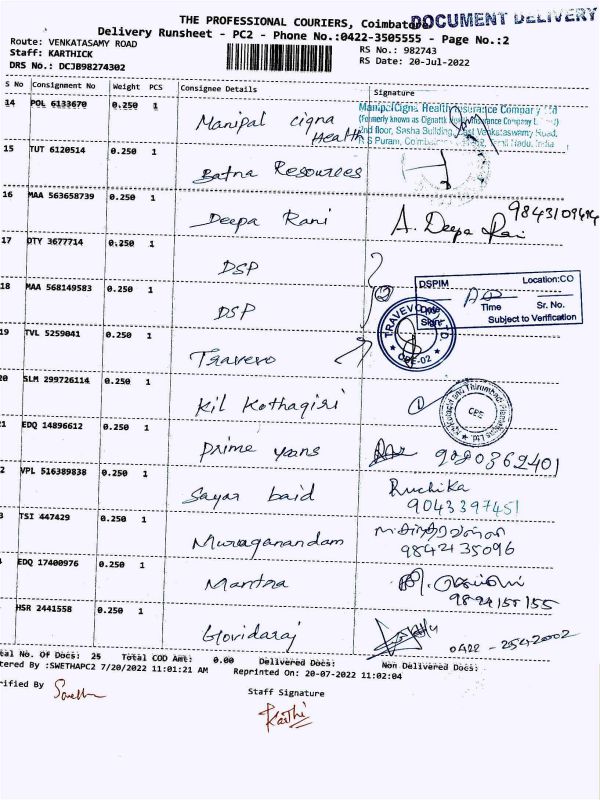 THE PROFESSIONAL COURIERS, Coimbatore
DOCUMENT DELIVERY
Delivery Runsheet - PC2 - Phone No.:0422-3505555 - Page No.:2
Route: VENKATASAMY ROAD
RS No.: 982743
Staff: KARTHICK
RS Date: 20-Jul-2022
DRS No.: DCJB98274302
S No Consignment No Weight PCS Consignee Details Signature
14 POL 6133670 0.250 1 Manipal cigna Health
ManipalCigna Health Insurance Company Ltd
(Formerly known as CignaTTK Health Insurance Company Limited)
2nd floor, Sasha Building, East Venkataswamy Road,
R S Puram, Coimbatore Tamil Nadu, India
15 TUT 6120514 0.250 1 Batna Resources
16 MAA 563658739 0.250 1 Deepa Rani A. Deepa Rani
17 DTY 3677714 0.250 1 DSP
DSPIM Location:CO
Time Sr. No.
Sign Subject to Verification
18 MAA 568149583 0.250 1 DSP
19 TVL 5259041 0.250 1 Travevo
TRAVEVO LTD. CBE-02
20 SLM 299726114 0.250 1 Kil Kothagiri
CBE
21 EDQ 14896612 0.250 1 Prime yaans 9080362401
2 VPL 516389838 0.250 1 Sayar baid Ruchika
9043397451
3 TSI 447429 0.250 1 Muraganandam
9842135096
EDQ 17400976 0.250 1 Mantra
9894155155
HSR 2441558 0.250 1 Govidaraj 0422 - 2542002
tal No. Of Docs: 25 Total COD Amt: 0.00 Delivered Docs: Non Delivered Docs:
tered By :SWETHAPC2 7/20/2022 11:01:21 AM Reprinted On: 20-07-2022 11:02:04
rified By Swetha
Staff Signature
Karthi